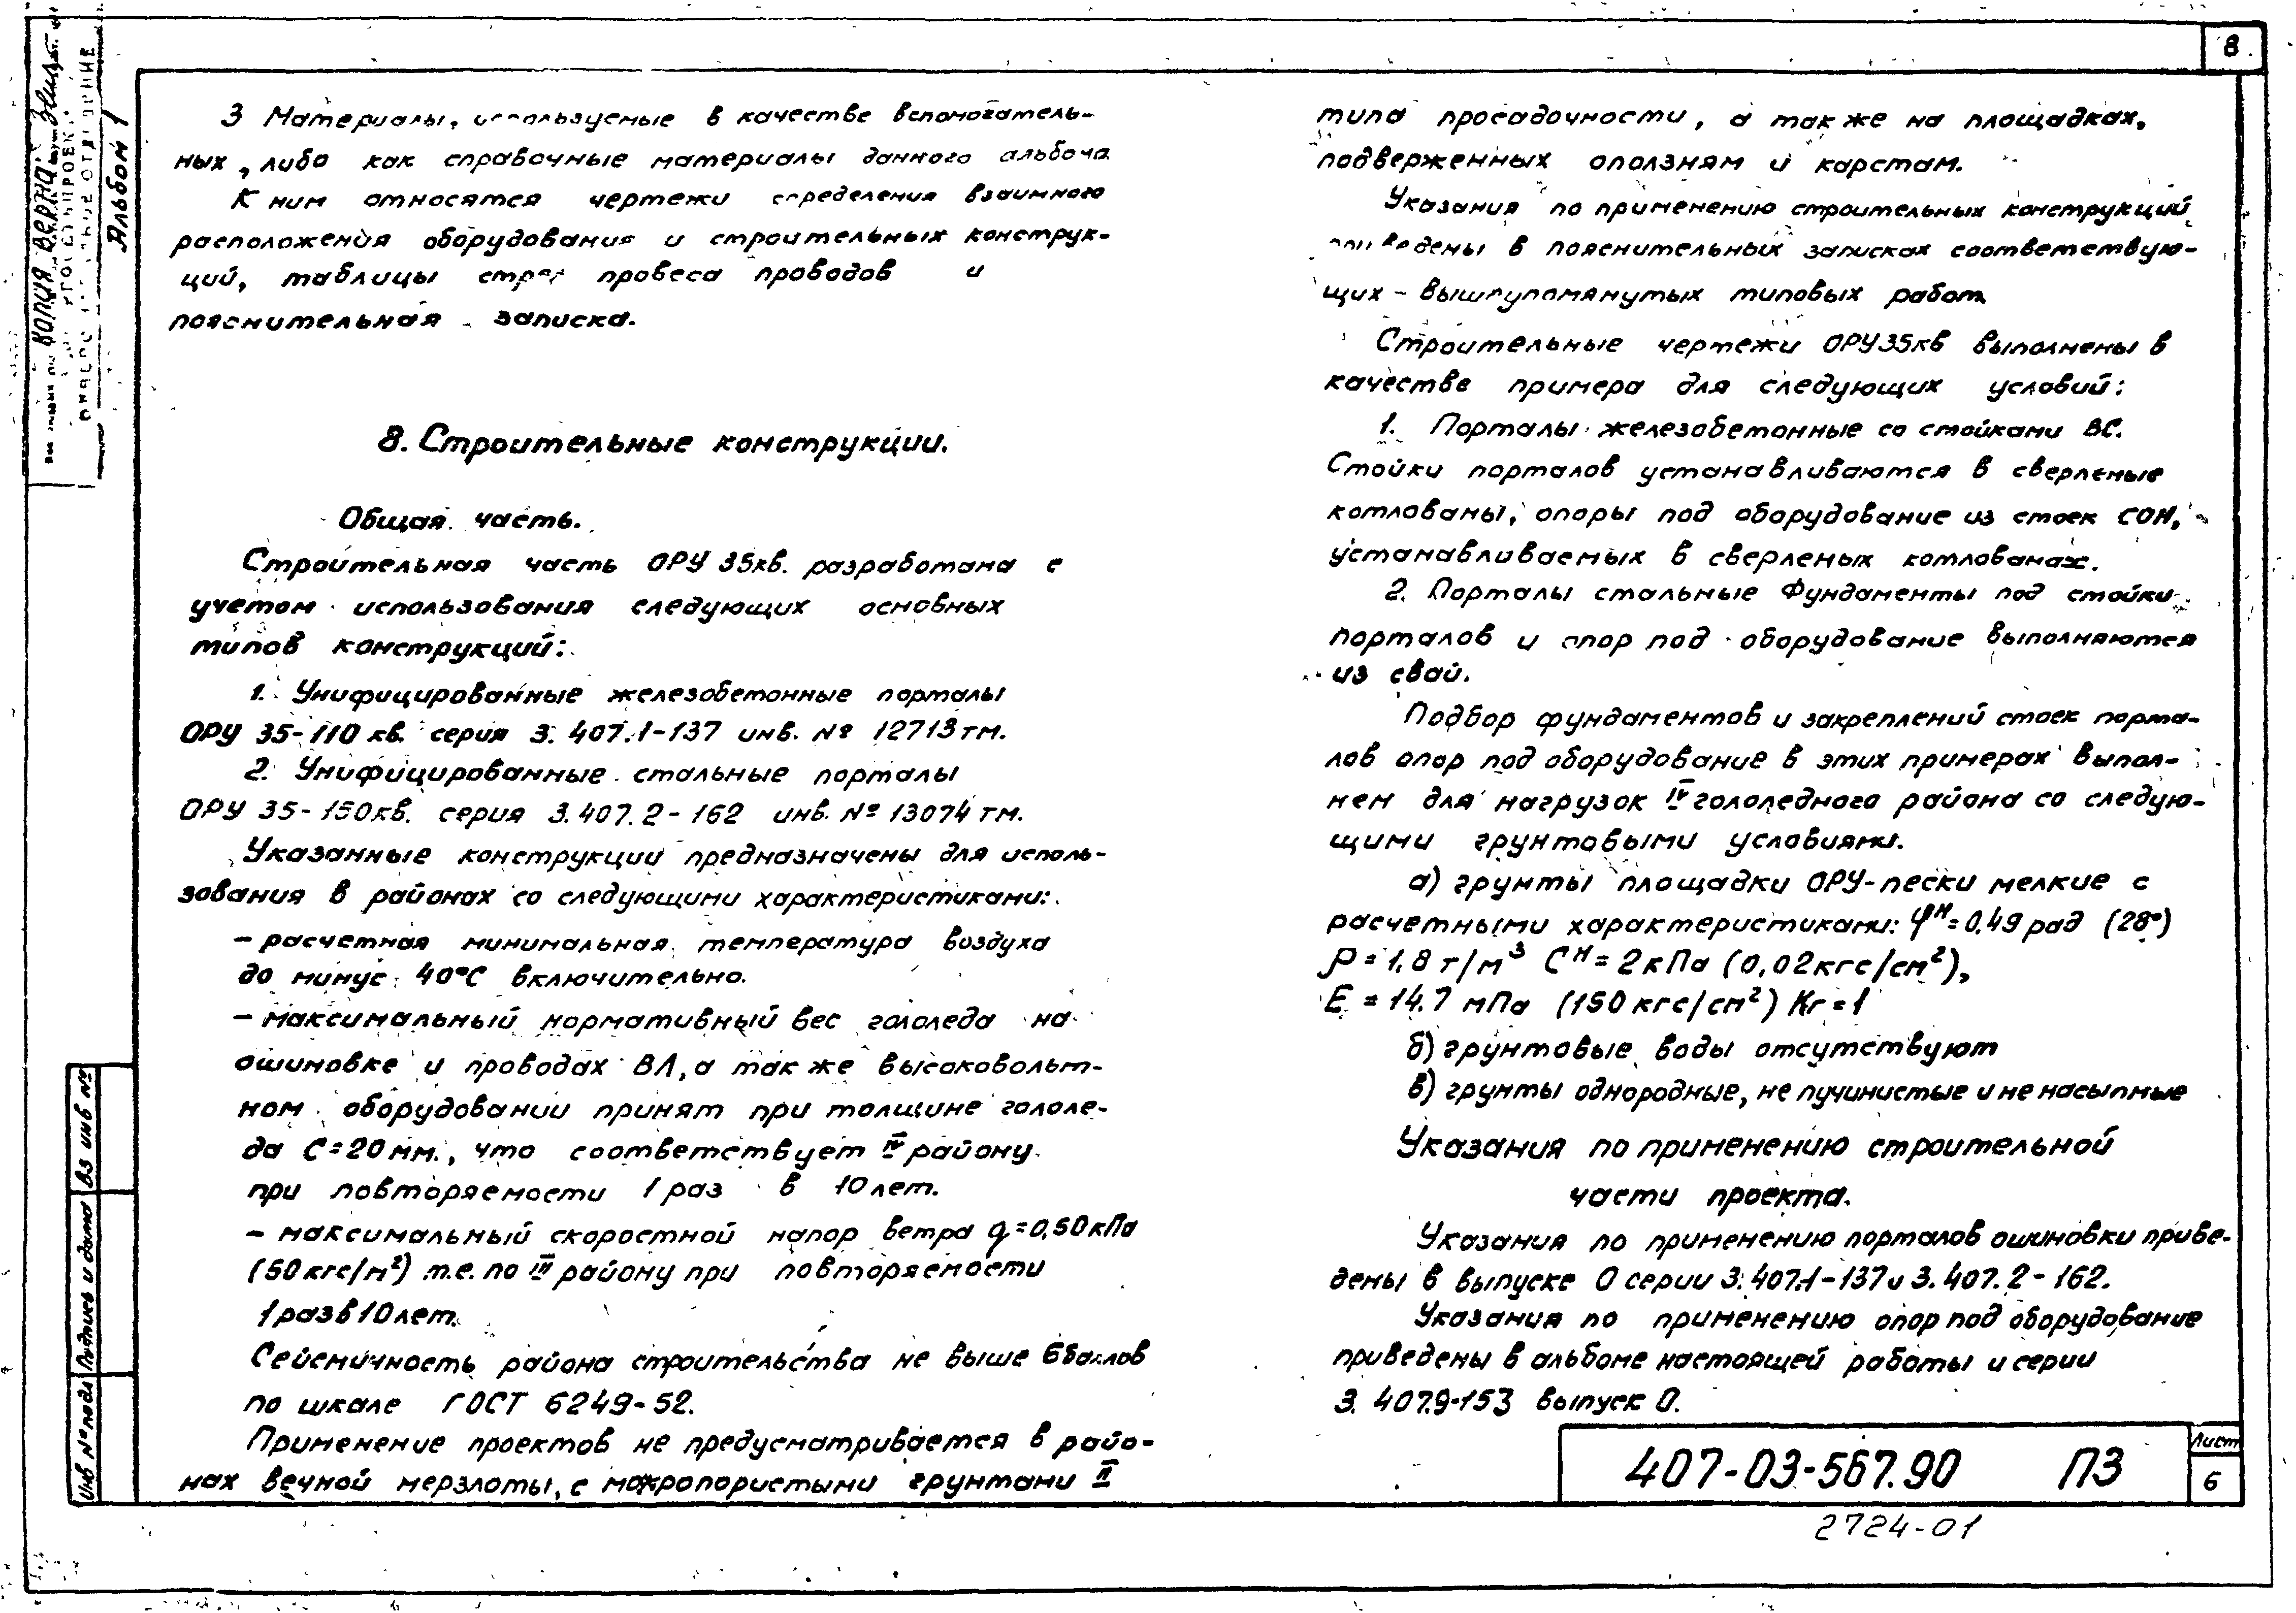 8
Альбом 1
Копия верна
3 Материалы, используемые в качестве вспомогатель-
ных, либо как справочные материалы данного альбома
К ним относятся чертежи определения взаимного
расположения оборудования и строительных конструк-
ций, таблицы стрел провеса проводов и
пояснительная записка.
8. Строительные конструкции.
Общая часть.
Строительная часть ОРУ 35кв. разработана с
учетом использования следующих основных
типов конструкций:
1. Унифицированные железобетонные порталы
ОРУ 35-110 кв. серия 3.407.1-137 инв. № 12713тм.
2. Унифицированные стальные порталы
ОРУ 35-150кв. серия 3.407.2-162 инв. № 13074тм.
Указанные конструкции предназначены для исполь-
зования в районах со следующими характеристиками:
- расчетная минимальная температура воздуха
до минус 40°С включительно.
- максимальный нормативный вес гололеда на
ошиновке и проводах ВЛ, а так же высоковольт-
ном оборудовании принят при толщине гололе-
да С=20мм., что соответствует IV району
при повторяемости 1 раз в 10 лет.
- максимальный скоростной напор ветра q=0,50кПа
(50кгс/м²) т.е. по III району при повторяемости
1 раз в 10 лет.
Сейсмичность района строительства не выше 6 баллов
по шкале ГОСТ 6249-52.
Применение проектов не предусматривается в райо-
нах вечной мерзлоты, с макропористыми грунтами II
типа просадочности, а так же на площадках,
подверженных оползням и карстам.
Указания по применению строительных конструкций
приведены в пояснительных записках соответствую-
щих - вышеупомянутых типовых работ
Строительные чертежи ОРУ35кв выполнены в
качестве примера для следующих условий:
1. Порталы железобетонные со стойками ВС.
Стойки порталов устанавливаются в сверленые
котлованы, опоры под оборудование из стоек СОН,
устанавливаемых в сверленых котлованах.
2. Порталы стальные Фундаменты под стойки
порталов и опор под оборудование выполняются
из свай.
Подбор фундаментов и закреплений стоек порта-
лов опор под оборудование в этих примерах выпол-
нен для нагрузок IV гололедного района со следую-
щими грунтовыми условиями.
а) грунты площадки ОРУ-пески мелкие с
расчетными характеристиками: φᴴ=0,49 рад (28°)
ρ=1,8 т/м³ Сᴴ=2кПа (0,02кгс/см²),
Е=14.7 мПа (150 кгс/см²) Кг=1
б) грунтовые воды отсутствуют
в) грунты однородные, не пучинистые и не насыпные
Указания по применению строительной
части проекта.
Указания по применению порталов ошиновки приве-
дены в выпуске 0 серии 3.407.1-137 и 3.407.2-162.
Указания по применению опор под оборудование
приведены в альбоме настоящей работы и серии
3.407.9-153 выпуск 0.
Инв № подл Подпись и дата Вз инв №
407-03-567.90 ПЗ
Лист
6
2724-01